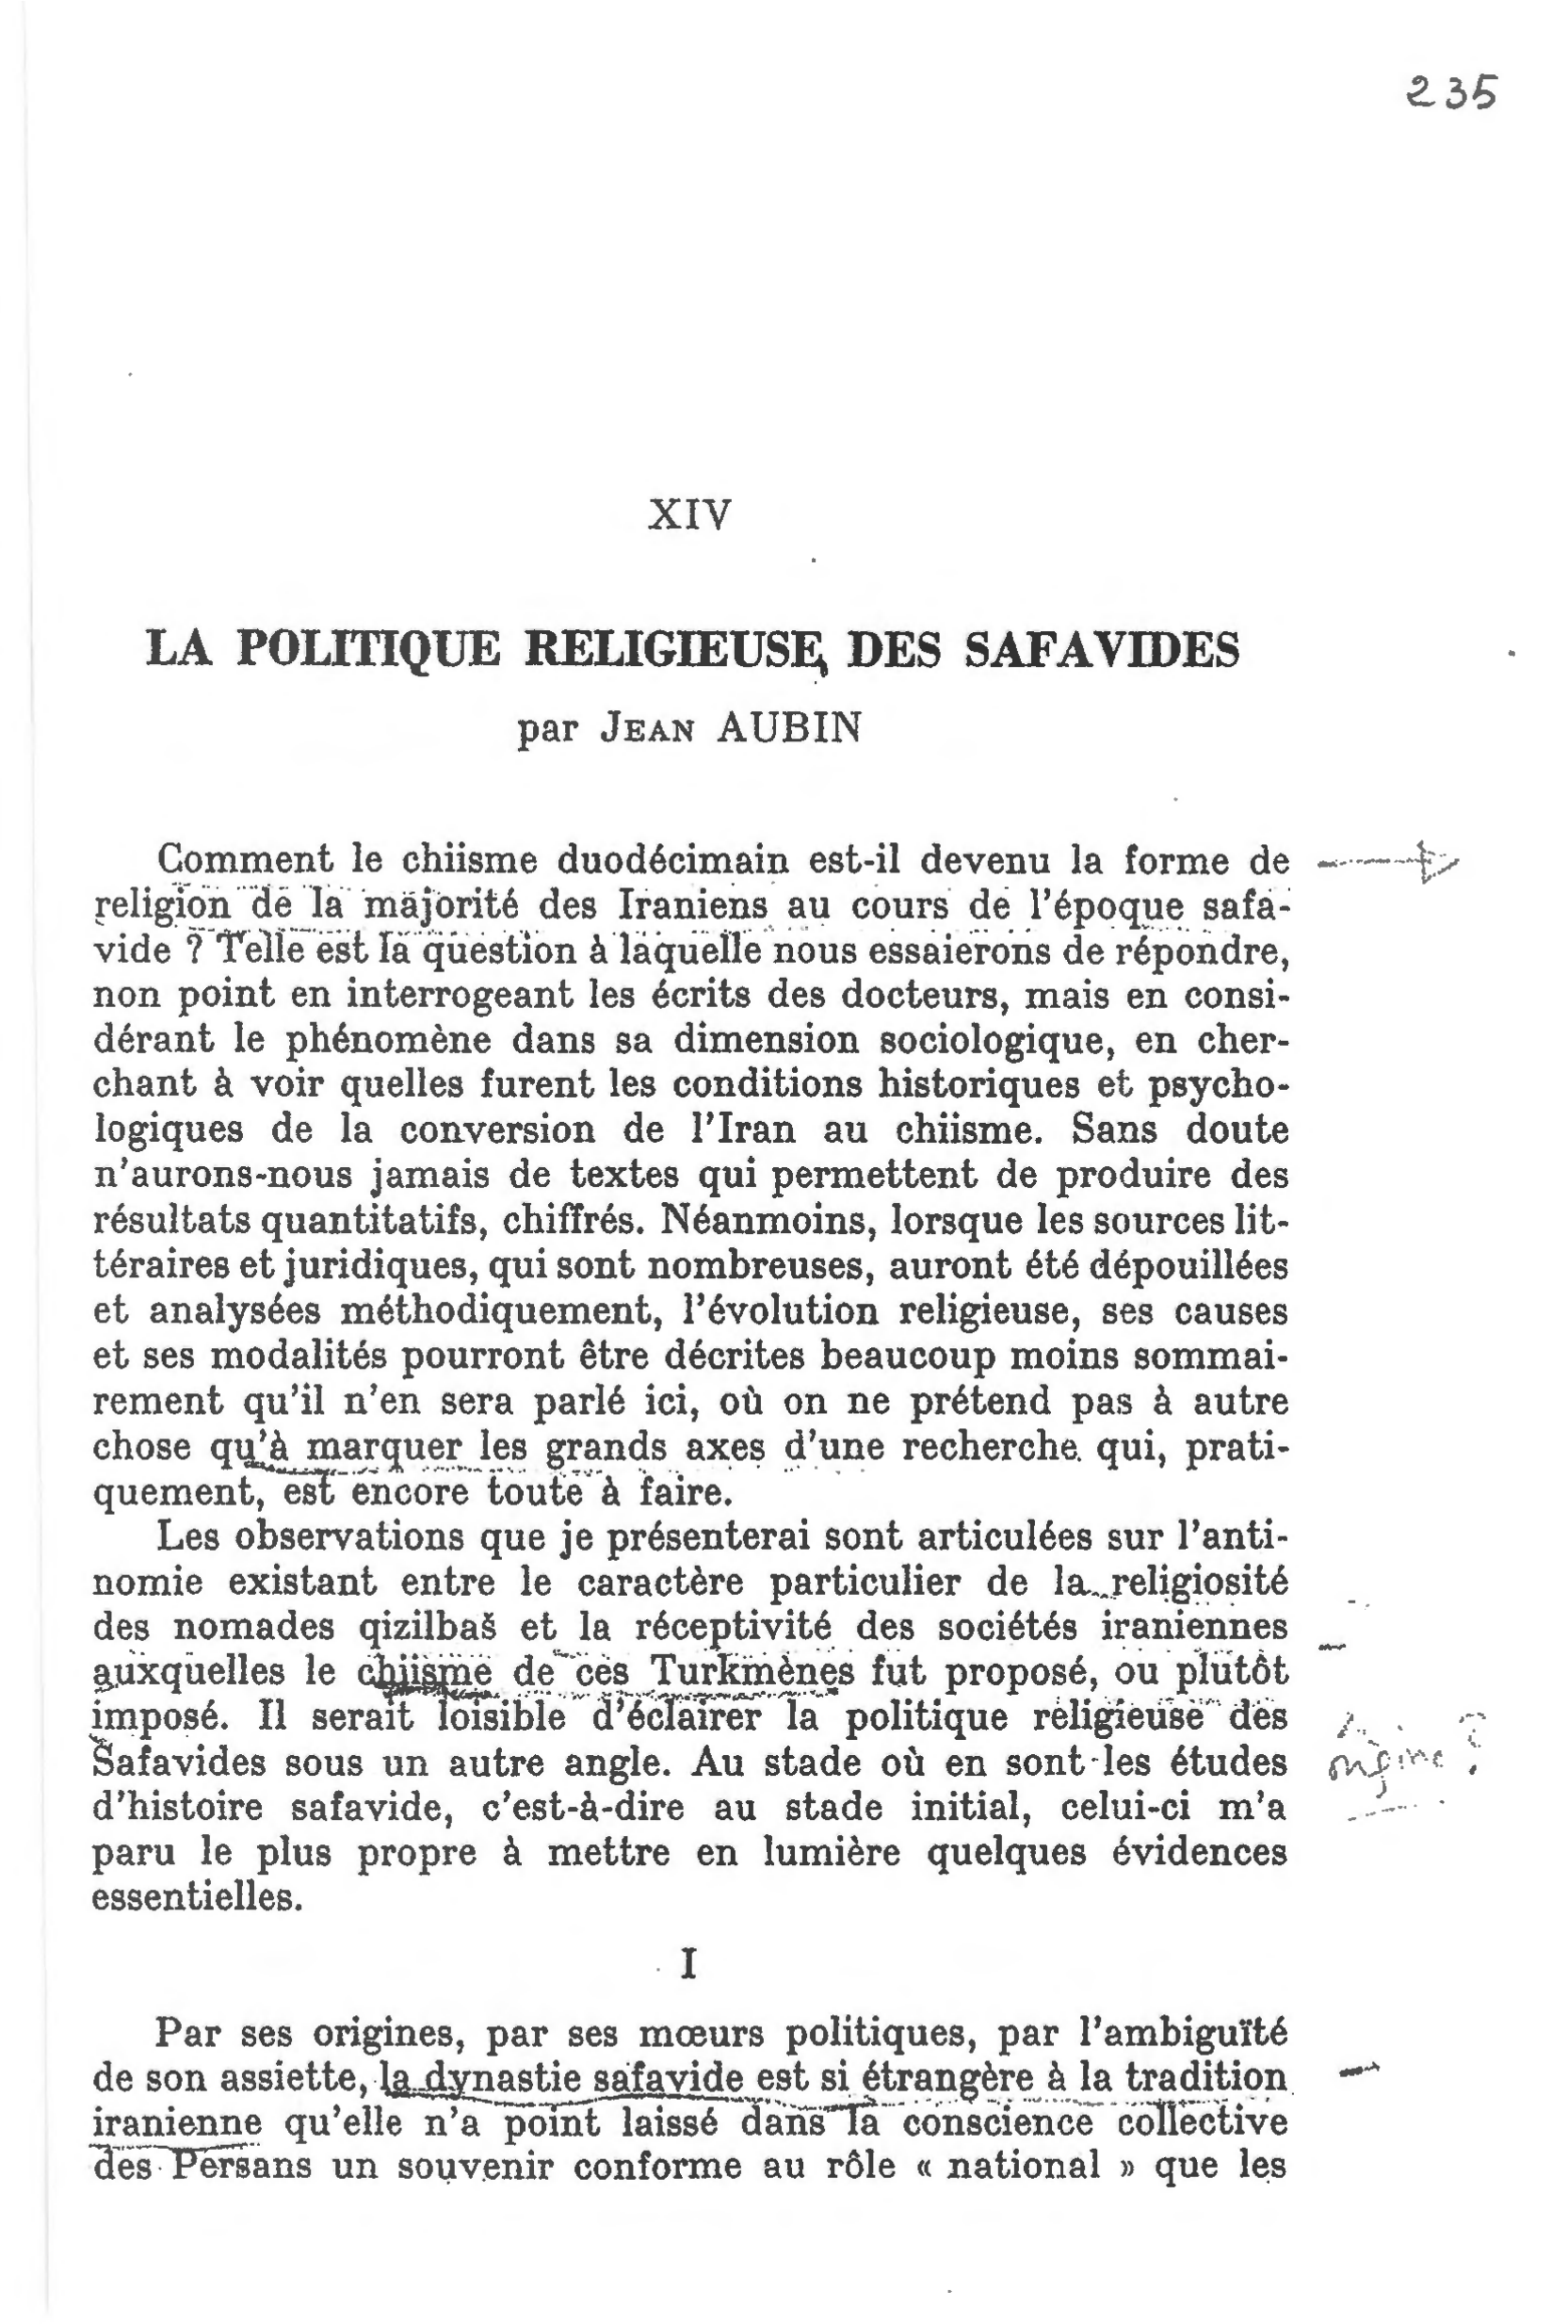 235
XIV
LA POLITIQUE RELIGIEUSE DES SAFAVIDES
par JEAN AUBIN
Comment le chiisme duodécimain est-il devenu la forme de
religion de la majorité des Iraniens au cours de l'époque safa-
vide ? Telle est la question à laquelle nous essaierons de répondre,
non point en interrogeant les écrits des docteurs, mais en consi-
dérant le phénomène dans sa dimension sociologique, en cher-
chant à voir quelles furent les conditions historiques et psycho-
logiques de la conversion de l'Iran au chiisme. Sans doute
n'aurons-nous jamais de textes qui permettent de produire des
résultats quantitatifs, chiffrés. Néanmoins, lorsque les sources lit-
téraires et juridiques, qui sont nombreuses, auront été dépouillées
et analysées méthodiquement, l'évolution religieuse, ses causes
et ses modalités pourront être décrites beaucoup moins sommai-
rement qu'il n'en sera parlé ici, où on ne prétend pas à autre
chose qu'à marquer les grands axes d'une recherche qui, prati-
quement, est encore toute à faire.
Les observations que je présenterai sont articulées sur l'anti-
nomie existant entre le caractère particulier de la religiosité
des nomades qizilbaš et la réceptivité des sociétés iraniennes
auxquelles le chiisme de ces Turkmènes fut proposé, ou plutôt
imposé. Il serait loisible d'éclairer la politique religieuse des
Safavides sous un autre angle. Au stade où en sont les études
d'histoire safavide, c'est-à-dire au stade initial, celui-ci m'a
paru le plus propre à mettre en lumière quelques évidences
essentielles.
I
Par ses origines, par ses mœurs politiques, par l'ambiguïté
de son assiette, la dynastie safavide est si étrangère à la tradition
iranienne qu'elle n'a point laissé dans la conscience collective
des Persans un souvenir conforme au rôle « national » que les